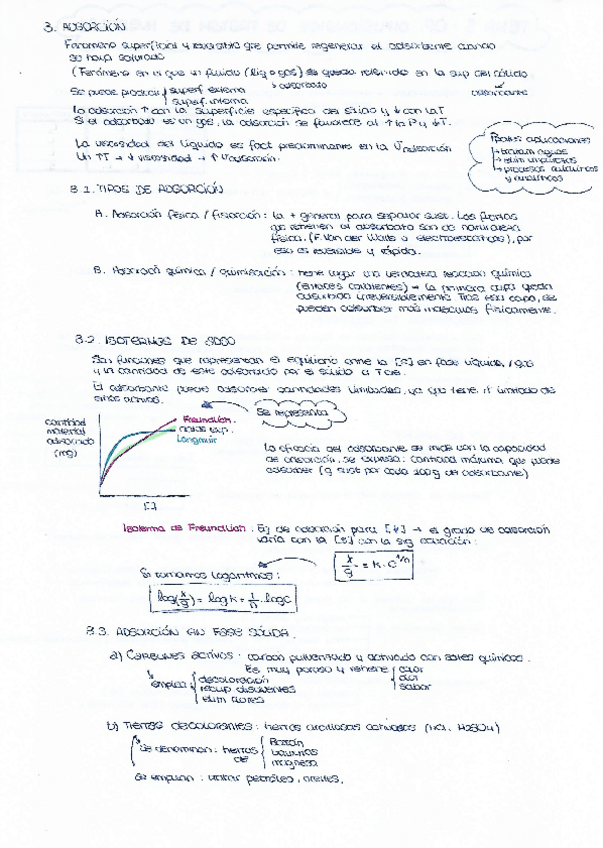 3. ADSORCIÓN
Fenómeno superficial y reversible que permite regenerar el adsorbente cuando
se haya saturado
(Fenómeno en el que un fluido (liq o gas) se queda retenido en la sup del sólido
adsorbato
adsorbente
Se puede producir superf. externa
superf. interna
La adsorción ↑ con la superficie específica del sólido y ↓ con la T
Si el adsorbato es un gas, la adsorción se favorece al ↑ la P y ↓ T.
La viscosidad del líquido es fact predominante en la Vadsorción
Un ↑T → ↓ viscosidad → ↑ Vadsorción.
aplicaciones
→ elim impurezas
→ procesos
y
3.1. TIPOS DE ADSORCIÓN
A. Adsorción física / fisisorción: la + general para separar sust. Las fuerzas
que retienen al adsorbato son de naturaleza
física, (F. Van der Walls o electroestáticas), por
eso es reversible y rápida.
B. Adsorción química / quimisorción: tiene lugar una verdadera reacción química
(enlaces covalentes) → la primera capa queda
adsorbida irreversiblemente. Tras esa capa, se
pueden adsorber más moléculas físicamente.
3.2. ISOTERMAS DE ADSO
Son funciones que representan el equilibrio entre la [S] en fase líquida / gas
y la cantidad de este adsorbido por el sólido a T cte.
El adsorbente puede adsorber cantidades limitadas, ya que tiene nº limitado de
sitios activos.
Se representa
cantidad
material
adsorbido
(mg)
Freundlich.
datos exp.
Langmuir
[C]
La eficacia del adsorbente se mide con la capacidad
de adsorción, se expresa: cantidad máxima que puede
adsorber (g sust por cada 100g de adsorbente)
Isoterma de Freundlich. Ej de adsorción para → el grado de adsorción
varía con la [S] con la sig ecuación:
x/g = K · C^1/n
Si tomamos logaritmos:
log(x/g) = log K + 1/n · log C
3.3. ADSORCIÓN EN FASE SÓLIDA.
a) Carbones activos: carbón pulverizado y activado con químicos.
Es muy poroso y retiene color
olor
sabor
emplea decoloración
recup disolventes
elim olores
b) Tierras decolorantes: tierras arcillosas activadas (HCl, H2SO4)
Se denominan: tierras de Batán
magnesa
Se emplean: petróleo, aceites.